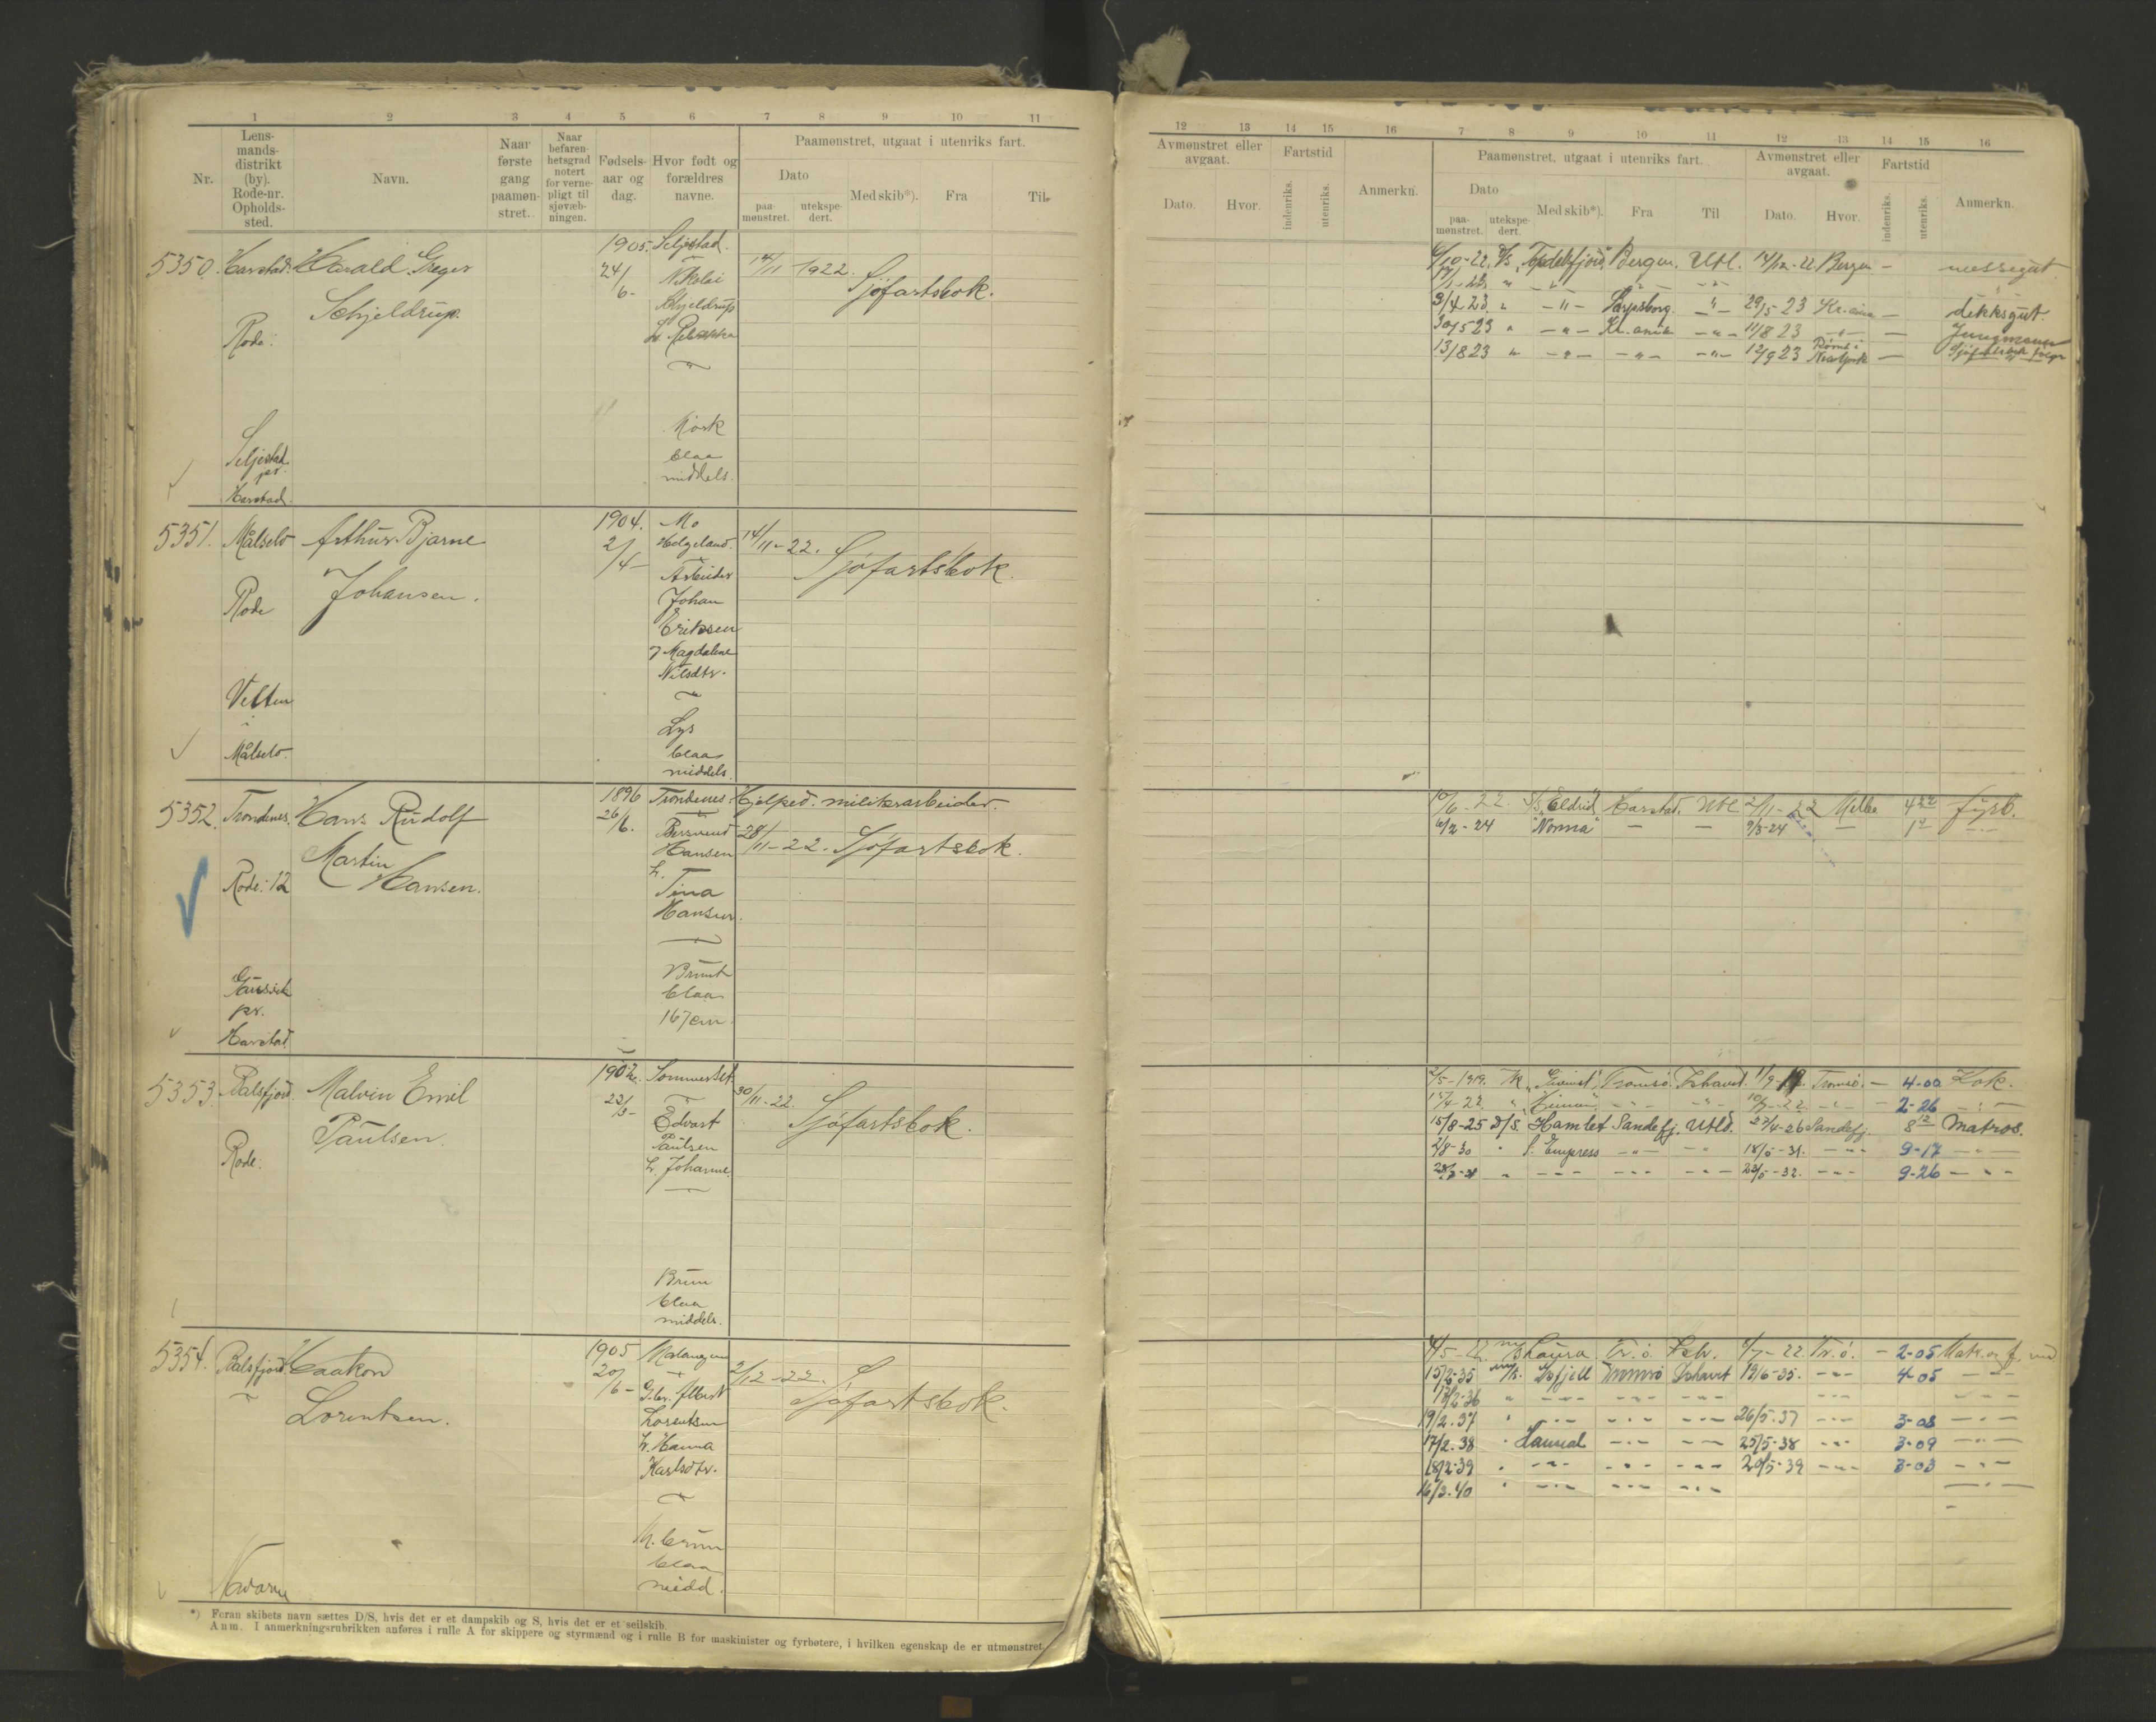 1 2 3 4 5 6 7 8 9 10 11
Nr.
Lens-
mands-
distrikt
(by).
Rode-nr.
Opholds-
sted.
Navn.
Naar
første
gang
paamøn-
stret.
Naar
befaren-
hetsgrad
notert
for verne-
pligt til
sjøvæb-
ningen.
Fødsels-
aar og
dag.
Hvor født og
forældres
navne.
Paamønstret, utgaat i utenriks fart.
Dato
paa-
mønstret.
utekspe-
dert.
Med skib*).
Fra
Til
5350. Harstad. Harald Greger
Schjeldrup.
Rode:
Seljestad
pr.
Harstad.
1905.
24/6-
Seljestad.
Nikolai
Schjeldrup
Mørk
blaa
middels.
14/11 1922.
Sjøfartsbok.
5351. Målselv Arthur Bjarne
Johansen.
Rode
Målselv.
1904.
2/4-
Mo
Helgeland.
Arbeider
Johan
Eriksen
Magdalene
Nilsdtr.
Lys
blaa
middels.
14/11-22.
Sjøfartsbok.
5352. Trondenes. Hans Rudolf
Martin
Hansen.
Rode: 12
pr.
Harstad.
1896
26/6.
Trondenes.
Hansen
h.
Tina
Hansen.
Brunt
blaa
167 cm.
Hjelped. militærarbeider.
28/11-22. Sjøfartsbok.
5353. Balsfjord Malvin Emil
Paulsen.
Rode:
1902.
23/3-
Sommerset.
Edvart
Paulsen
h. Johanne
Brun
blaa
middels.
30/11-22.
Sjøfartsbok.
5354. Balsfjord. Haakon
Lorentsen.
1905
20/6-
Malangen
Albert
Lorentsen
h. Hanna
Karlsdtr.
brun
blaa
midd.
2/12-22.
Sjøfartsbok.
*) Foran skibets navn sættes D/S, hvis det er et dampskib og S, hvis det er et seilskib.
Anm. I anmerkningsrubrikken anføres i rulle A for skippere og styrmænd og i rulle B for maskinister og fyrbøtere, i hvilken egenskap de er utmønstret.
12 13 14 15 16 7 8 9 10 11 12 13 14 15 16
Avmønstret eller
avgaat.
Dato.
Hvor.
Fartstid
indenriks.
utenriks.
Anmerkn.
Paamønstret, utgaat i utenriks fart.
Dato
paa-
mønstret.
utekspe-
dert.
Med skib*).
Fra
Til
Avmønstret eller
avgaat.
Dato.
Hvor.
Fartstid
indenriks.
utenriks.
Anmerkn.
6/10-22. "Topdalsfjord" Bergen. Utl. 14/12-22 Bergen - messegut
3/4-23. " -"- Sarpsborg. -"- 29/5 23 Kr.ania - dekksgut.
30/5 23 " -"- Kr.ania -"- 11/8 23 - Jungmann
13/8 23 " -"- -"- -"- 12/9 23 Rømt i New York -
10/6-22. S/S "Eldrid" Harstad. Utl. 2/11-22 Melbo 4 22 fyrb.
6/2-24 "Norma" - - 9/3-24 -
2/5-1919. Tromsø. Ishavet. Tromsø. - 4-00 Kok.
2-26
15/8-25 D/S. Hamlet Sandefj. Utld. 27/4-26 Sandefj. 8 12 Matros.
2/8-30 " S. Empress -"- 18/5-31. -"- 9-17 -"-
" -"- -"- -"- 23/5-32. -"- 9-26 -"-
4/5-22. Laura Tr.ø 8/7-22 Tr.ø. - 2-05
15/2-35 Isfjell Tromsø Ishavet 19/6-35. -"- 4-05 -"-
18/2-36 " -"- -"- -"- -"- -"-
19/2.37 " -"- -"- -"- 26/5.37 -"- 3-08 -"-
17/2.38 " -"- -"- 25/5-38 -"- 3-09 -"-
18/2-39 " -"- -"- -"- 20/5-39 -"- 3-03 -"-
16/3.40 " -"- -"- -"- -"-